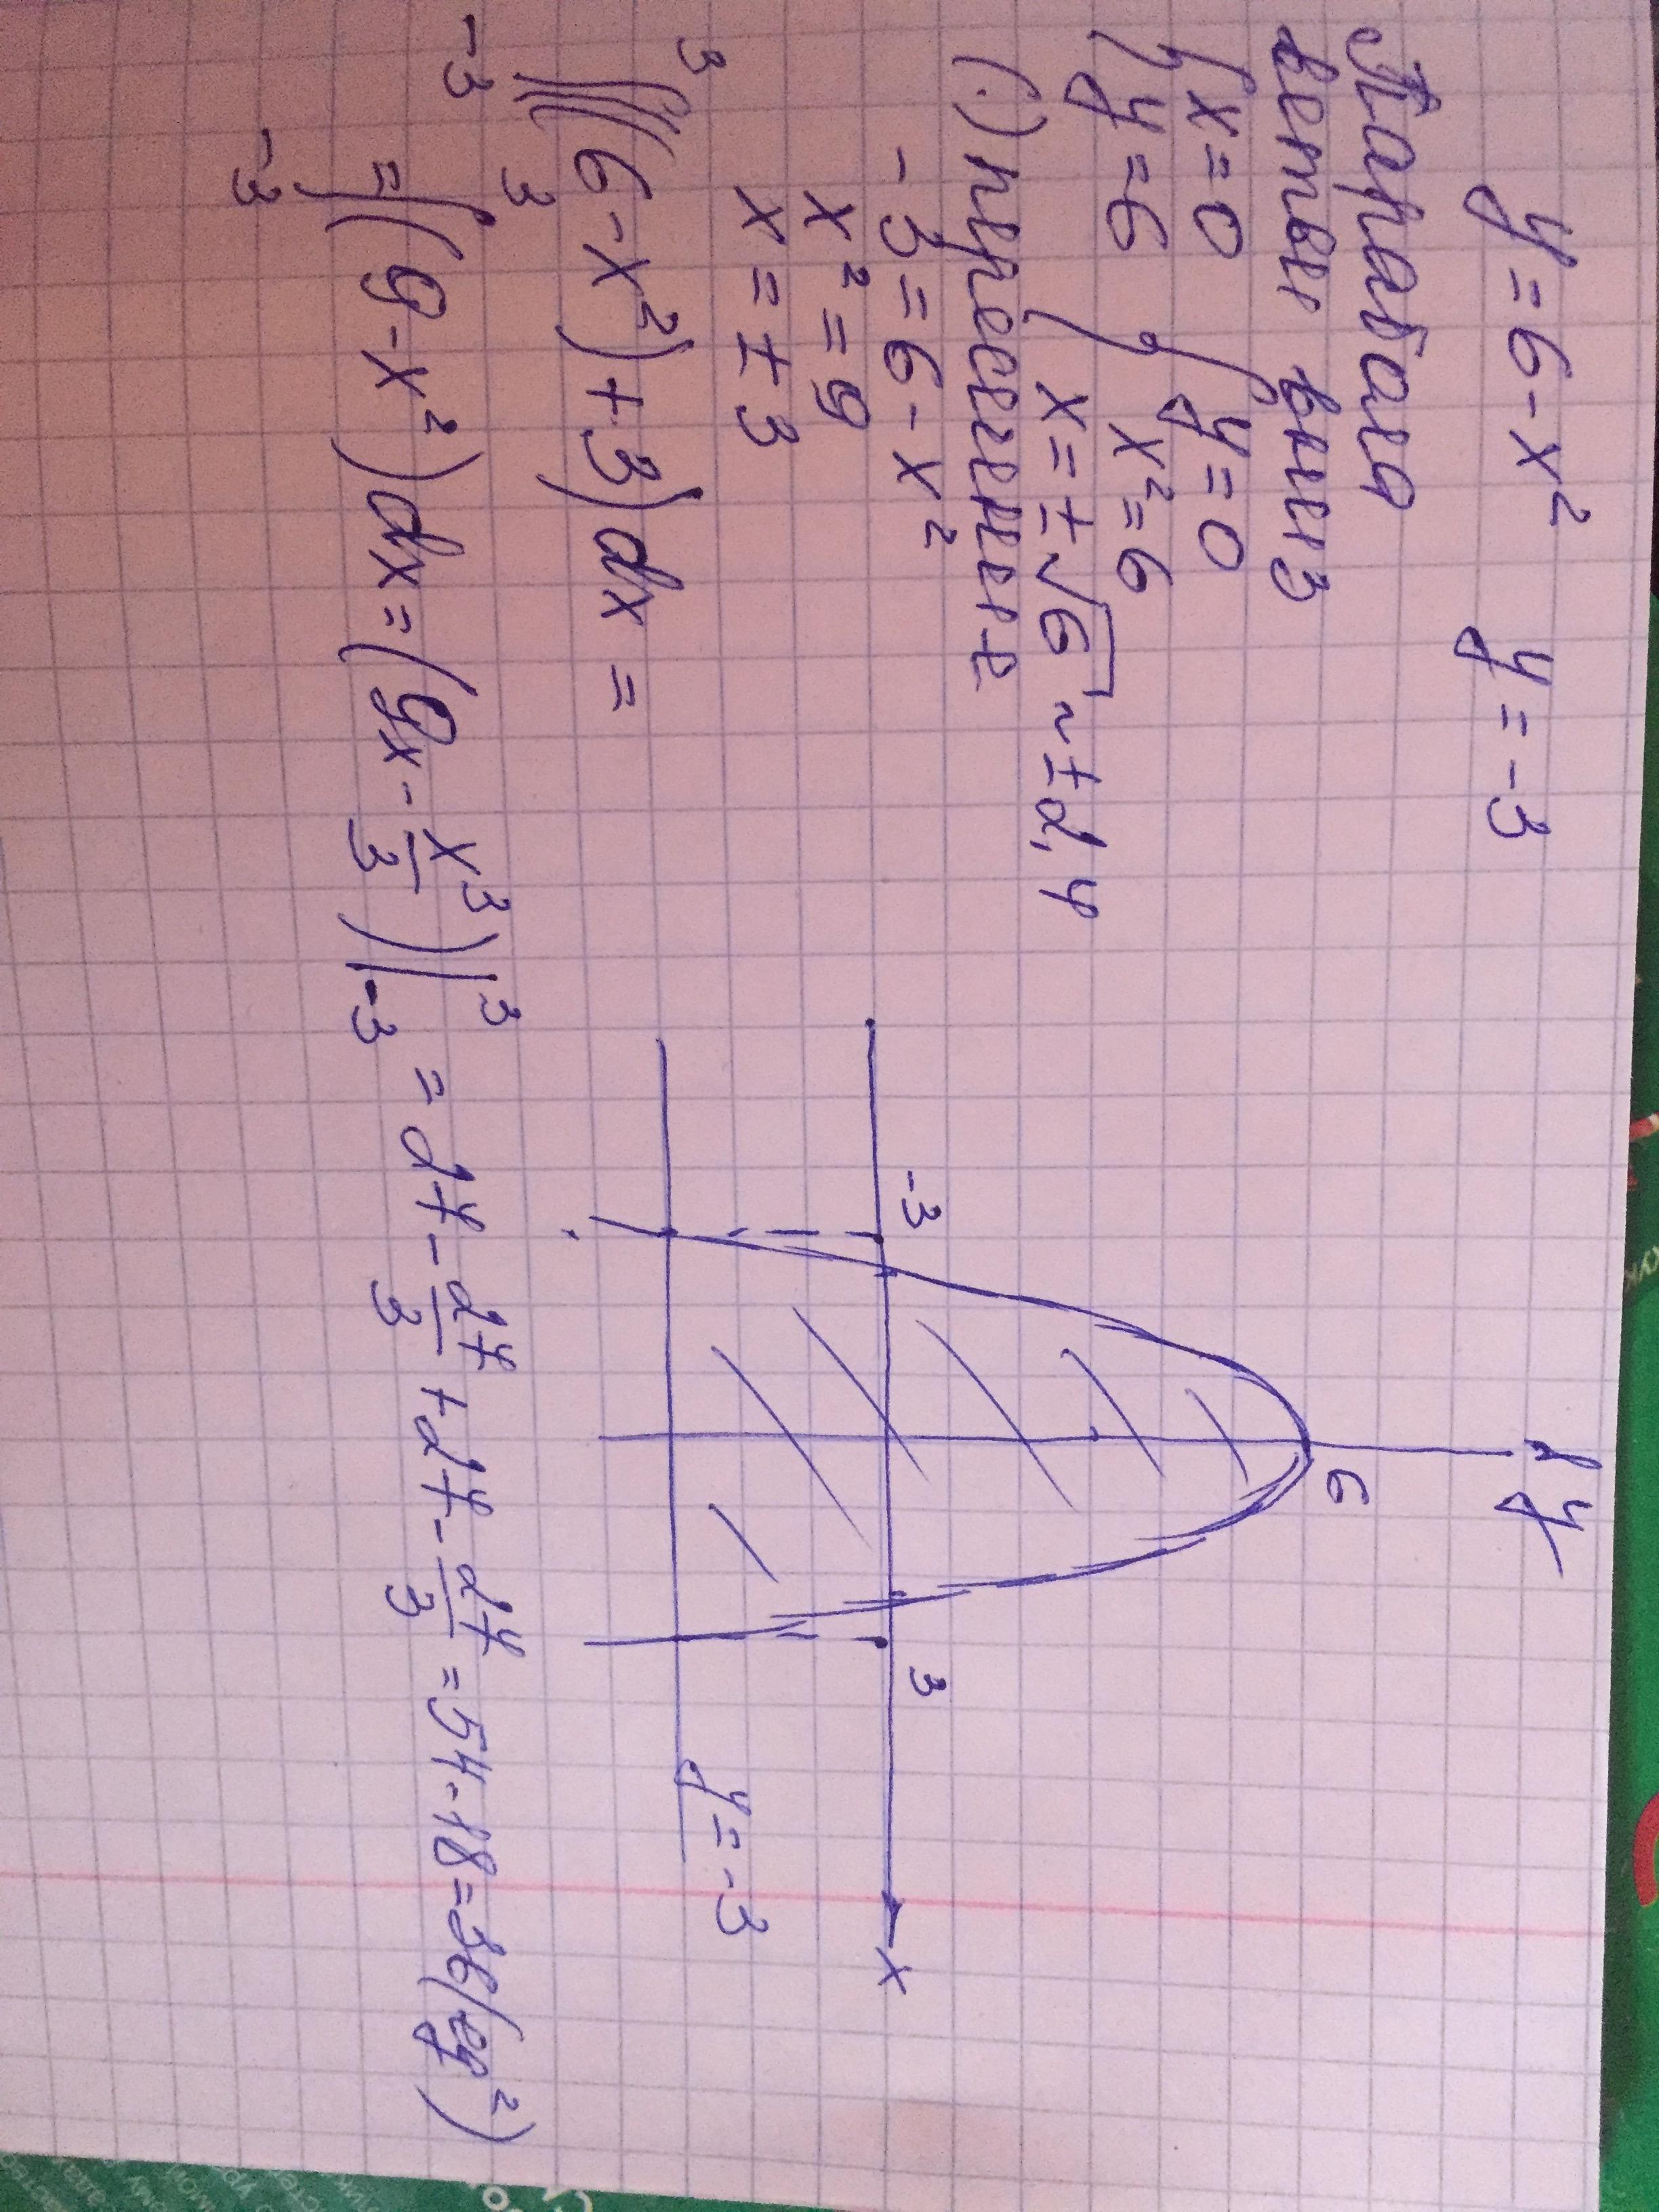 y = 6 - x² y = -3
Парабола
ветви вниз
{ x = 0 { y = 0
y = 6 x² = 6
x = ± √6 ~ ± 2,4
(·) пересечение
-3 = 6 - x²
x² = 9
x = ± 3
3
∫((6 - x²) + 3) dx =
-3
3
= ∫(9 - x²) dx = (9x - x³/3)|³₋₃ = 27 - 27/3 + 27 - 27/3 = 54 - 18 = 36 (ед²)
-3
y
6
-3
3
x
y = -3